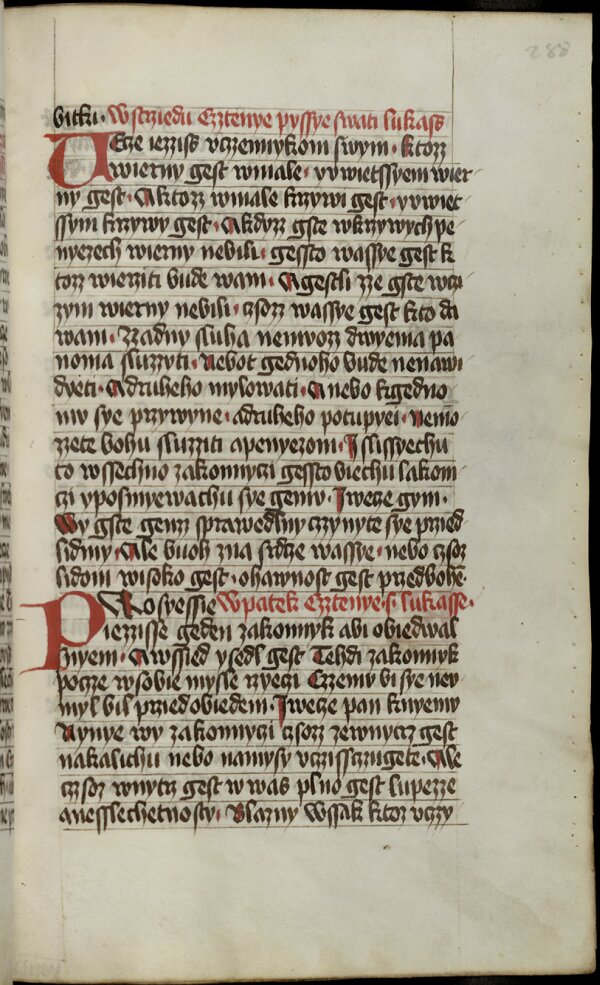 288
bitku · W strziedu Cztenye pyssye swati lukass
Uecze iezziss vczennykom swym · ktozz
wierny gest wmale · yvwietssyem wier
ny gest · A ktozz wmale krzywi gest · yvwiet
ssym krzywy gest · A kdyzz gste wkrzywych pe
nyezech wierny nebili · gessto wassye gest k
tozz wierziti bude wam · A gestli zze gste wczi
zym wierny nebili · czsozz wassye gest kto da
wam · Zzadny sluha nemozz dwyema pa
noma sluzzyti · nebot gednoho bude nenawi
dyeti · A druheho mylowati · A nebo kgedno
mv sye przywyne · adruheho potupyei · nemo
zzete bohu sluzziti apenyezom · I slissyechu
to wssechno zakonnyczi gessto biechu lakom
czi yposmyewachu sye gemv · I wecze gym ·
Wy gste genz sprawedlny czzynyte sye przied
lidmy · Ale buoh zna srdze wassye · nebo czsoz
lidom wisoko gest · ohawnost gest przedbohem
Prosyessie W patek Cztenye · s · lukasse ·
iezzisse geden zakonnyk abi obiedwal
snyem · A wssied ysedl gest Tehdi zakonnyk
pocze wsobie mysle rzyeczi Czemv bi sye nev
myl bil przied obiedem · I wecze pan knyemv
Nynye wy zakonnyczi czsozz zewnytrz gest
nakalichu nebo namysy vczissczugete · Ale
czsoz wnytrz gest w was plno gest lupezze
anesslechetnosty · Blazny wssak ktoz vczy